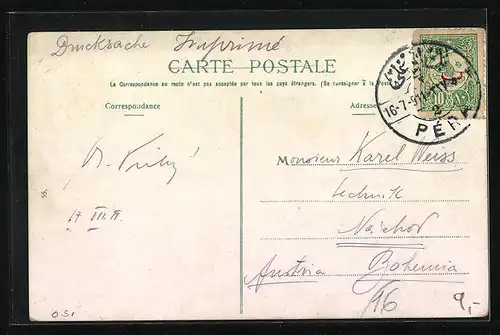 Drucksache Imprimé
CARTE POSTALE
La Correspondance au recto n'est pas acceptée par tous les pays étrangers. (Se renseigner à la Poste)
Correspondance
Adresse
16-7-91
PÉRA
10
Monsieur Karel Weiss
technik
Náchod
Austria Bohemia
55.
17 III
051
16
9,-